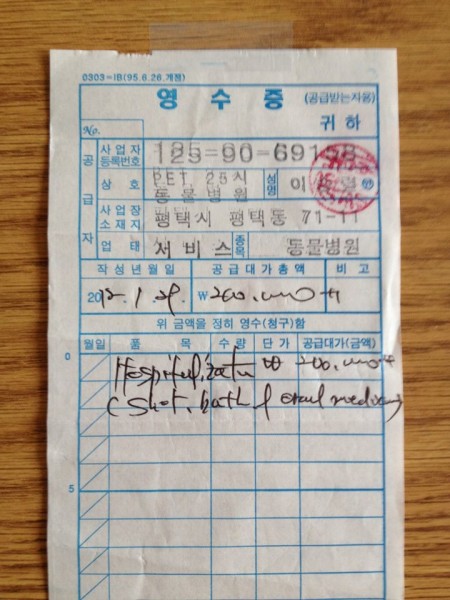 0303-IB(95.6.26.개정)
영수증 (공급받는자용)
No. 귀하
공급자
사업자등록번호 125-90-69158
상호 PET, 25시 동물병원 성명 이
사업장소재지 평택시 평택동 71-11
업태 서비스 종목 동물병원
작성년월일 공급대가총액 비고
2012. 1. 29. ₩200,000
위 금액을 정히 영수(청구)함
월일 품목 수량 단가 공급대가(금액)
0
₩ 200,000
(Shot, bath & oral
5